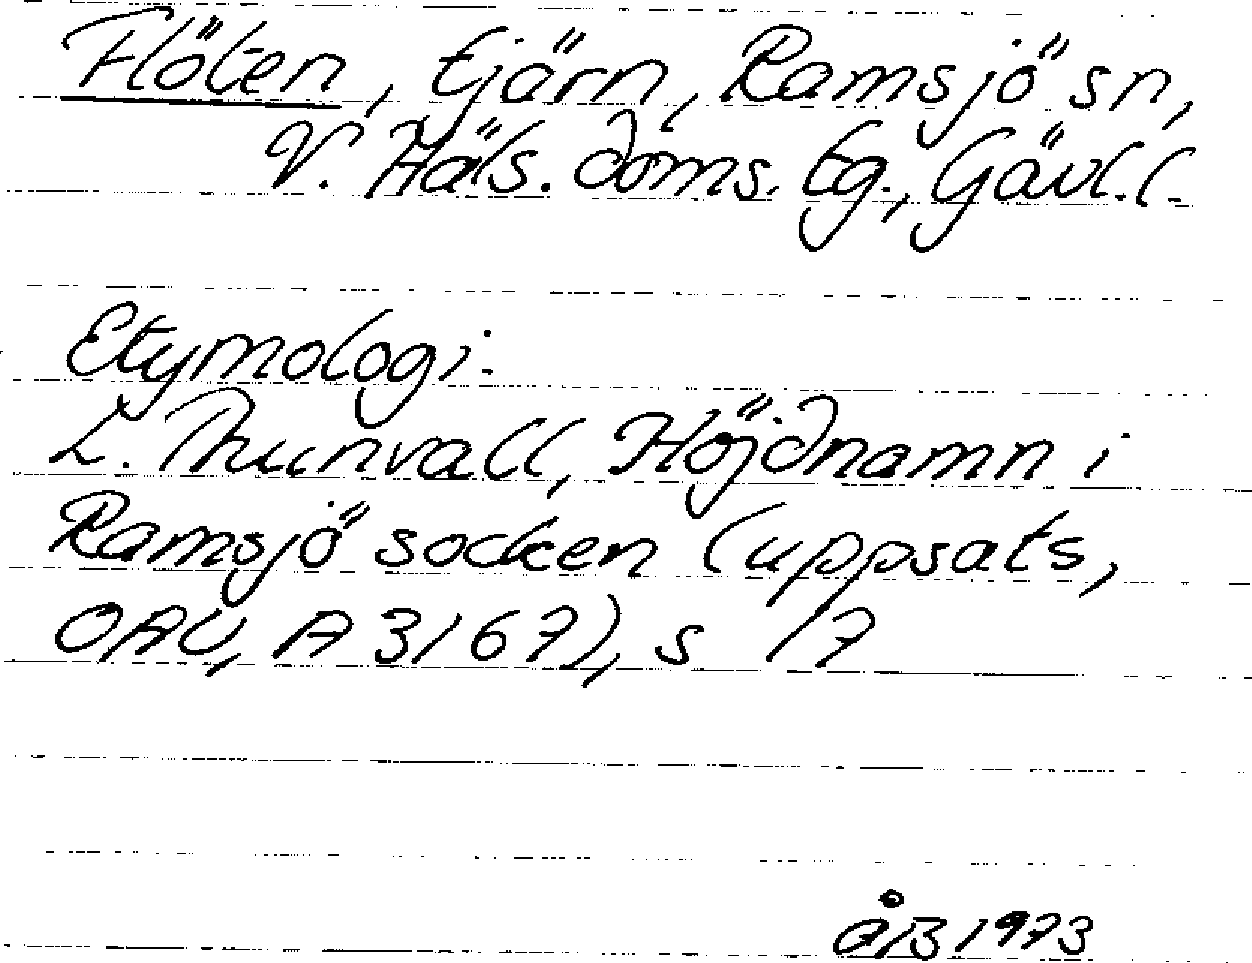 Flöten, tjärn, Ramsjö sn,
V. Häls. doms. tg., Gävl. l.
Etymologi.
L. Thunvall, Höjdnamn i
Ramsjö socken (uppsats,
OAU, A 3167), s 17
ÅB 1973